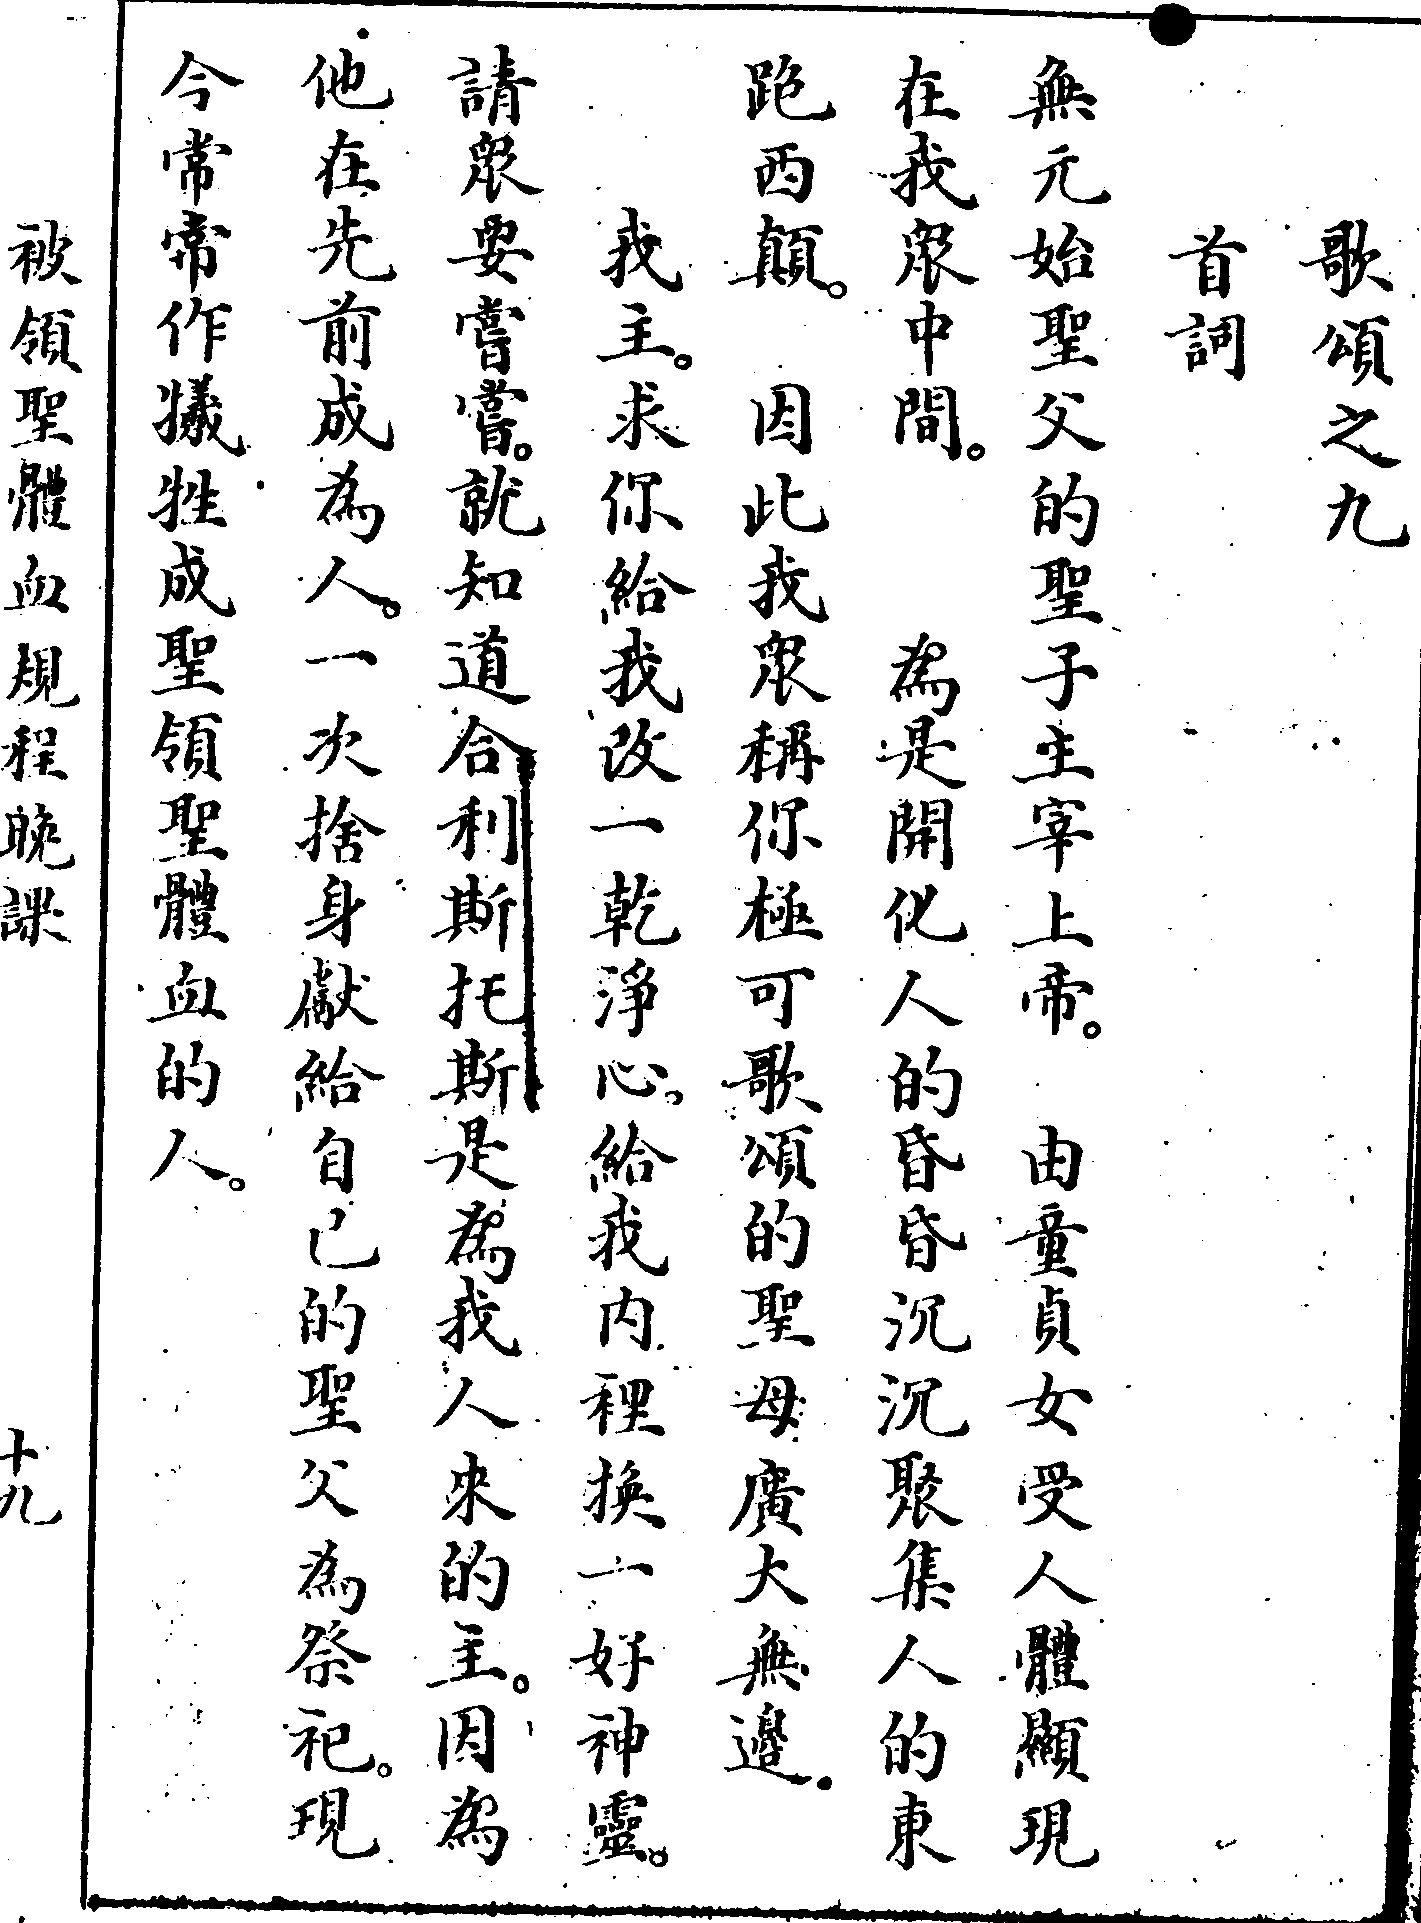 歌頌之九
首詞
無元始聖父的聖子主宰上帝。由童貞女受人體顯現
在我眾中間。為是開化人的昏昏沉沉聚集人的東
跑西顛。因此我眾稱你極可歌頌的聖母廣大無邊.
我主。求你給我改一乾淨心。給我內裡換一好神靈。
請眾要嘗嘗。就知道合利斯托斯是為我人來的主。因為
他在先前成為人。一次捨身獻給自己的聖父為祭祀。現
今常常作犧牲成聖領聖體血的人。
被領聖體血規程晚課
十九